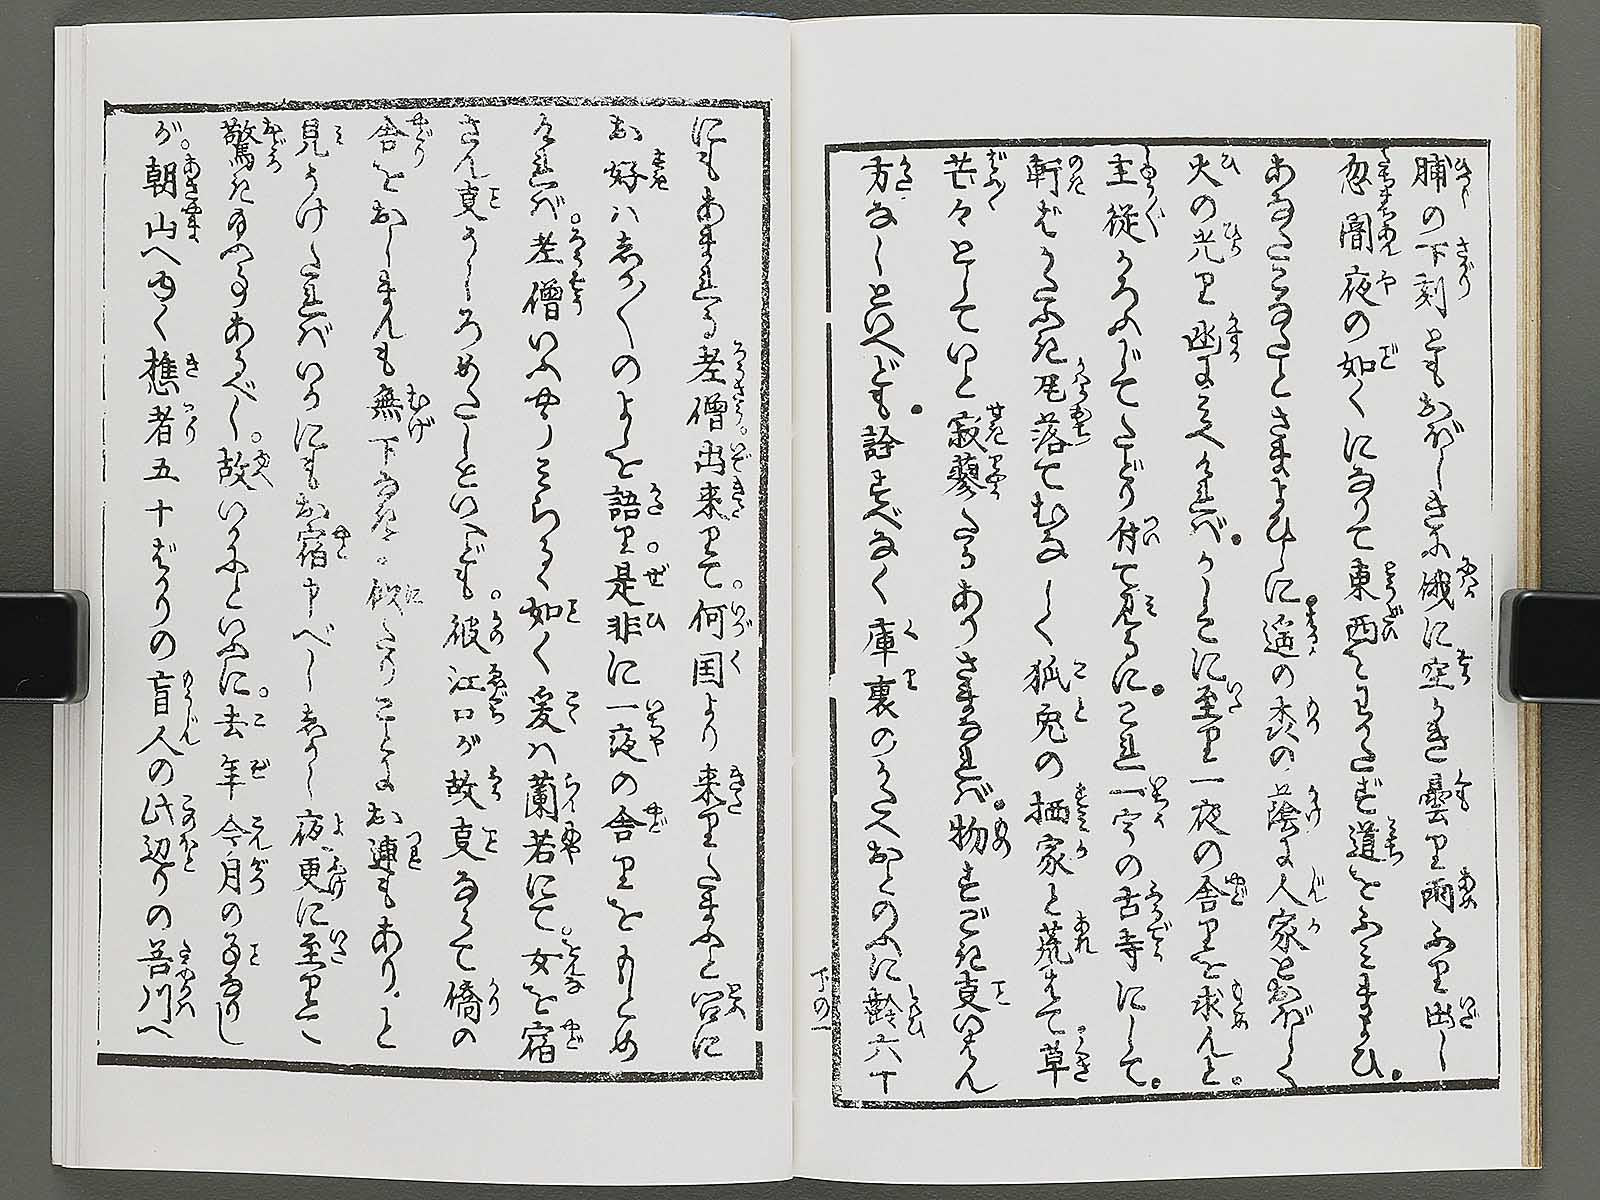 晡の下刻ともおぼしきに俄に空かき曇り雨ふり出し
忽闇夜の如くになりて東西をわかたず道をふみまよひ。
あなたこなたとさまよひしに。遥の森の蔭に人家とおぼしく
火の光り幽に見へければ。かしこに至り一夜の舎りを求んと。
主従かろふじてたどり付て見るに。これ一宇の古寺にして。
軒ばかたふき瓦落てむなしく狐兎の栖家と荒はて。草
茫々としていと寂寥たるありさまなれば。物すごき事いはん
方なしといへども。詮すべなく庫裏のかたへおとのふに齢六十
下の一
にもあまれる老僧出来りて。何国より来りたまふと問に
お好はしか〲のよしを語り。是非に一夜の舎りをもとめ
ければ。老僧いふやうみらるゝ如く爰は蘭若にて。女を宿
さん事うしろめたしといへども。彼江口が故事ならで僑の
舎をおしまんも無下なり。似たりことにお連もあり。と
見うけたればいかにもお宿申べししかし夜更に至りて
驚き玉ふ事あるべし。故いかにといふに。去年今月の事なりし
が。朝山へゆく樵者五十ばかりの盲人の此辺りの谷川へ